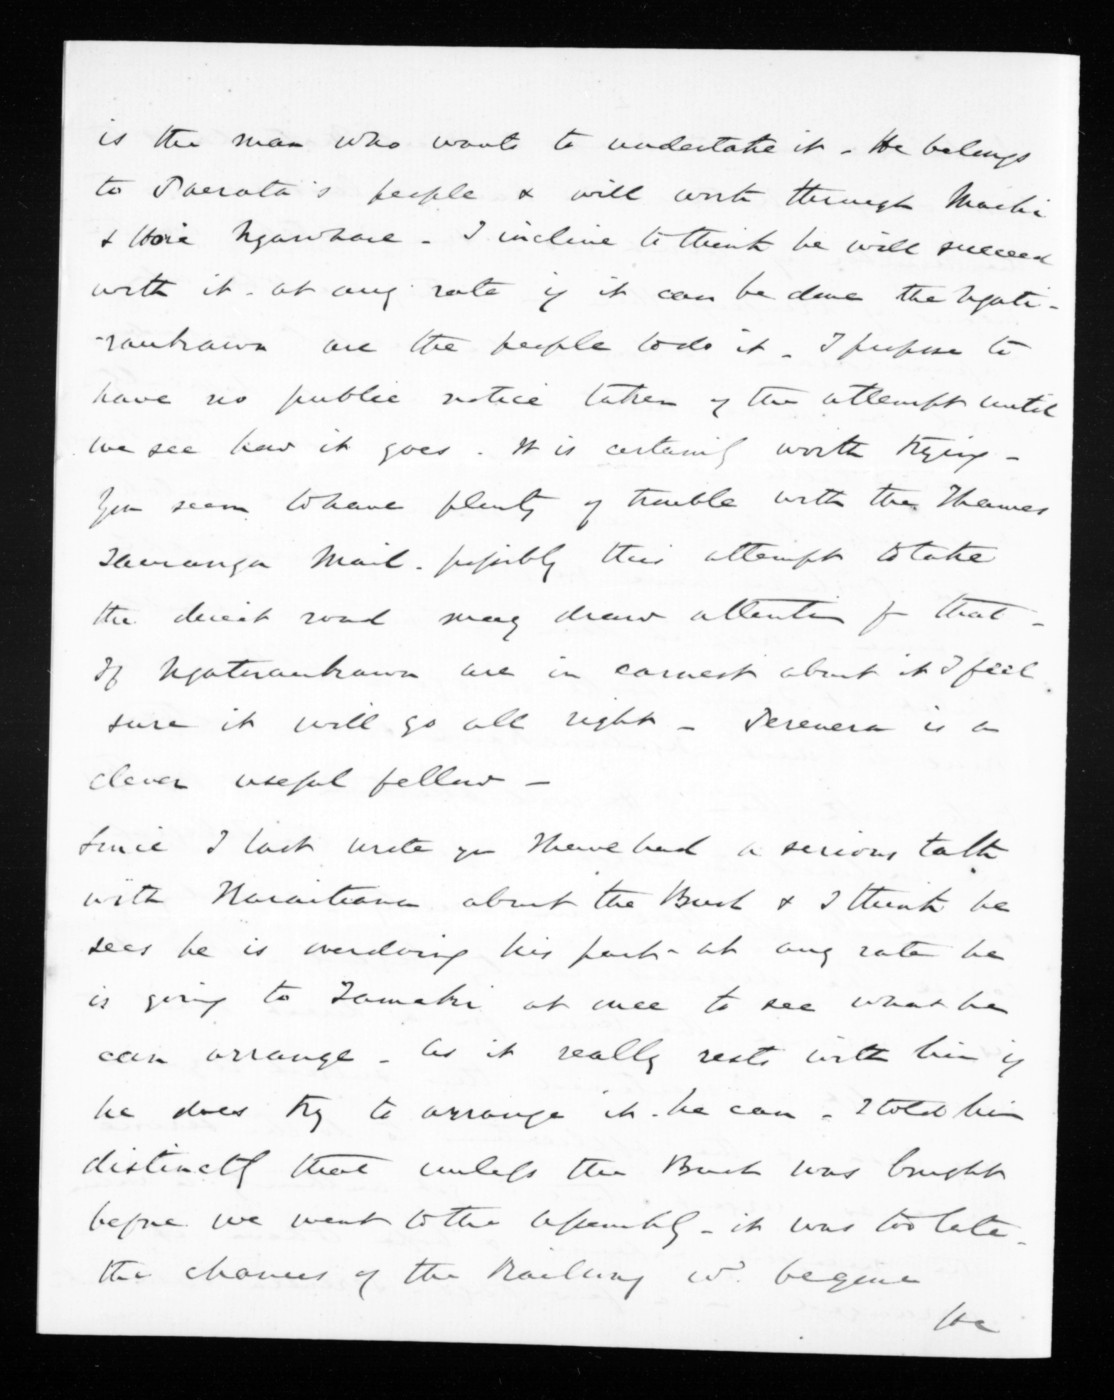 is the man who wants to undertake it - He belongs
to Paerata's people & will work through Maihi
& Hori Ngawhare - I incline to think he will succeed
with it - at any rate if it can be done the Ngati-
-raukawa are the people to do it - I propose to
have no public notice taken of the attempt until
we see how it goes. It is certainly worth trying -
You seem to have plenty of trouble with the Thames
Tauranga Mail. possibly this attempt to take
the direct road may draw attention fr that -
If Ngatiraukawa are in earnest about it I feel
sure it will go all right - is a
clever useful fellow -
Since I last wrote you I have had a serious talk
with Karaitiana about the Bush & I think he
sees he is overdoing his part - at any rate he
is going to Tamaki at once to see what he
can arrange - As it really rests with him if
he does try to arrange it - he can - I told him
distinctly that unless the Bush was bought
before we went to the Assembly - it was too late -
the chances of the Railway wd. be gone
He